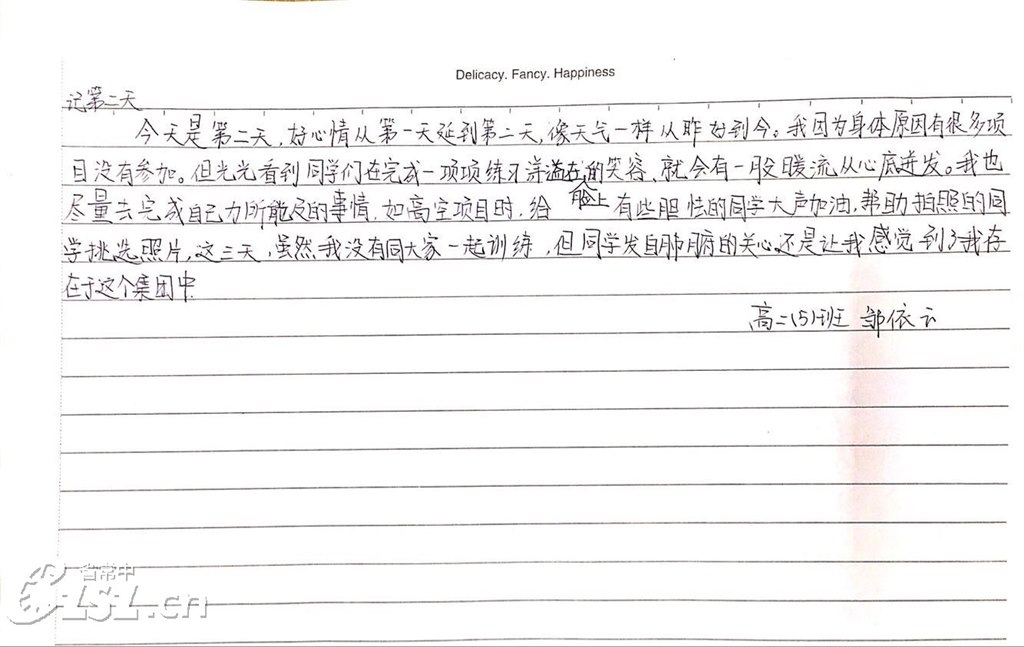 Delicacy. Fancy. Happiness
记第二天
今天是第二天，好心情从第一天延到第二天，像天气一样从昨好到今。我因为身体原因有很多项
目没有参加。但光光看到同学们在完成一项项练习洋溢在脸上的笑容，就会有一股暖流从心底迸发。我也
尽量去完成自己力所能及的事情，如高空项目时，给有些胆怯的同学大声加油，帮助拍照的同
学挑选照片，这三天，虽然我没有同大家一起训练，但同学发自肺腑的关心还是让我感觉到了我存
在于这个集团中
高二(5)班 邹依云
省常中
LSL.cn